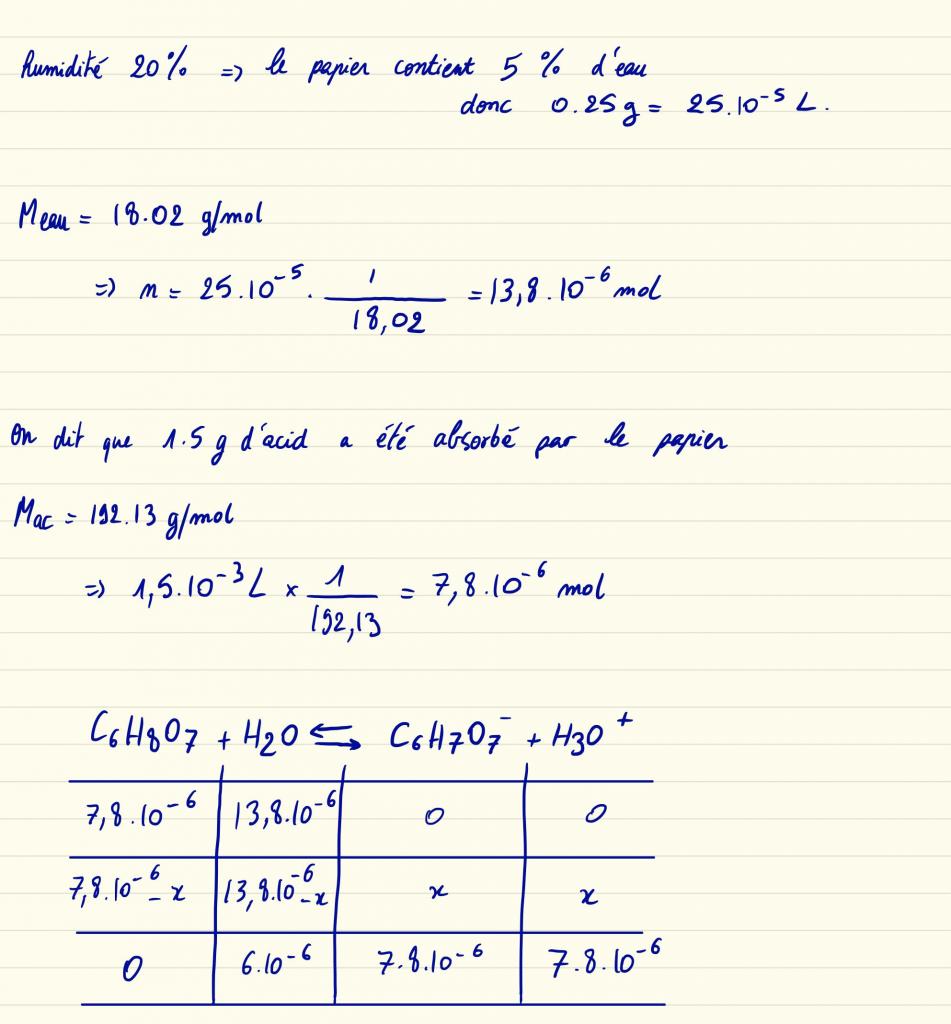 Humidité 20% => le papier contient 5 % d'eau
donc 0.25 g = 25.10⁻⁵ L.
Meau = 18.02 g/mol
=> n = 25.10⁻⁵ . 1/18,02 = 13,8.10⁻⁶ mol
On dit que 1.5 g d'acid a été absorbé par le papier
Mac = 192.13 g/mol
=> 1,5.10⁻³ L × 1/192,13 = 7,8.10⁻⁶ mol
C₆H8O7 + H₂O ⇆ C₆H7O7⁻ + H3O⁺
7,8.10⁻⁶ 13,8.10⁻⁶ 0 0
7,8.10⁻⁶ - x 13,8.10⁻⁶ - x x x
0 6.10⁻⁶ 7.8.10⁻⁶ 7.8.10⁻⁶